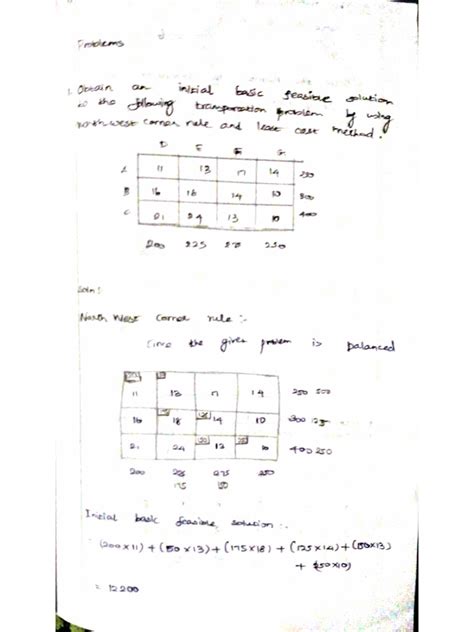 Problems
1. Obtain an initial basic feasible solution
to the following transportation problem by using
north west corner rule and least cost method.
D E F G
A 11 13 17 14 250
B 16 18 14 10 300
C 21 24 13 10 400
200 225 275 250
Soln:
North West Corner rule :-
Since the given problem is balanced
11 13 17 14 250 50
16 18 14 10 300 125
21 24 13 10 400 250
200 225 275 250
175 150
Initial basic feasible solution :-
(200x11) + (50x13) + (175x18) + (125x14) + (150x13)
+ (250x10)
= 12200